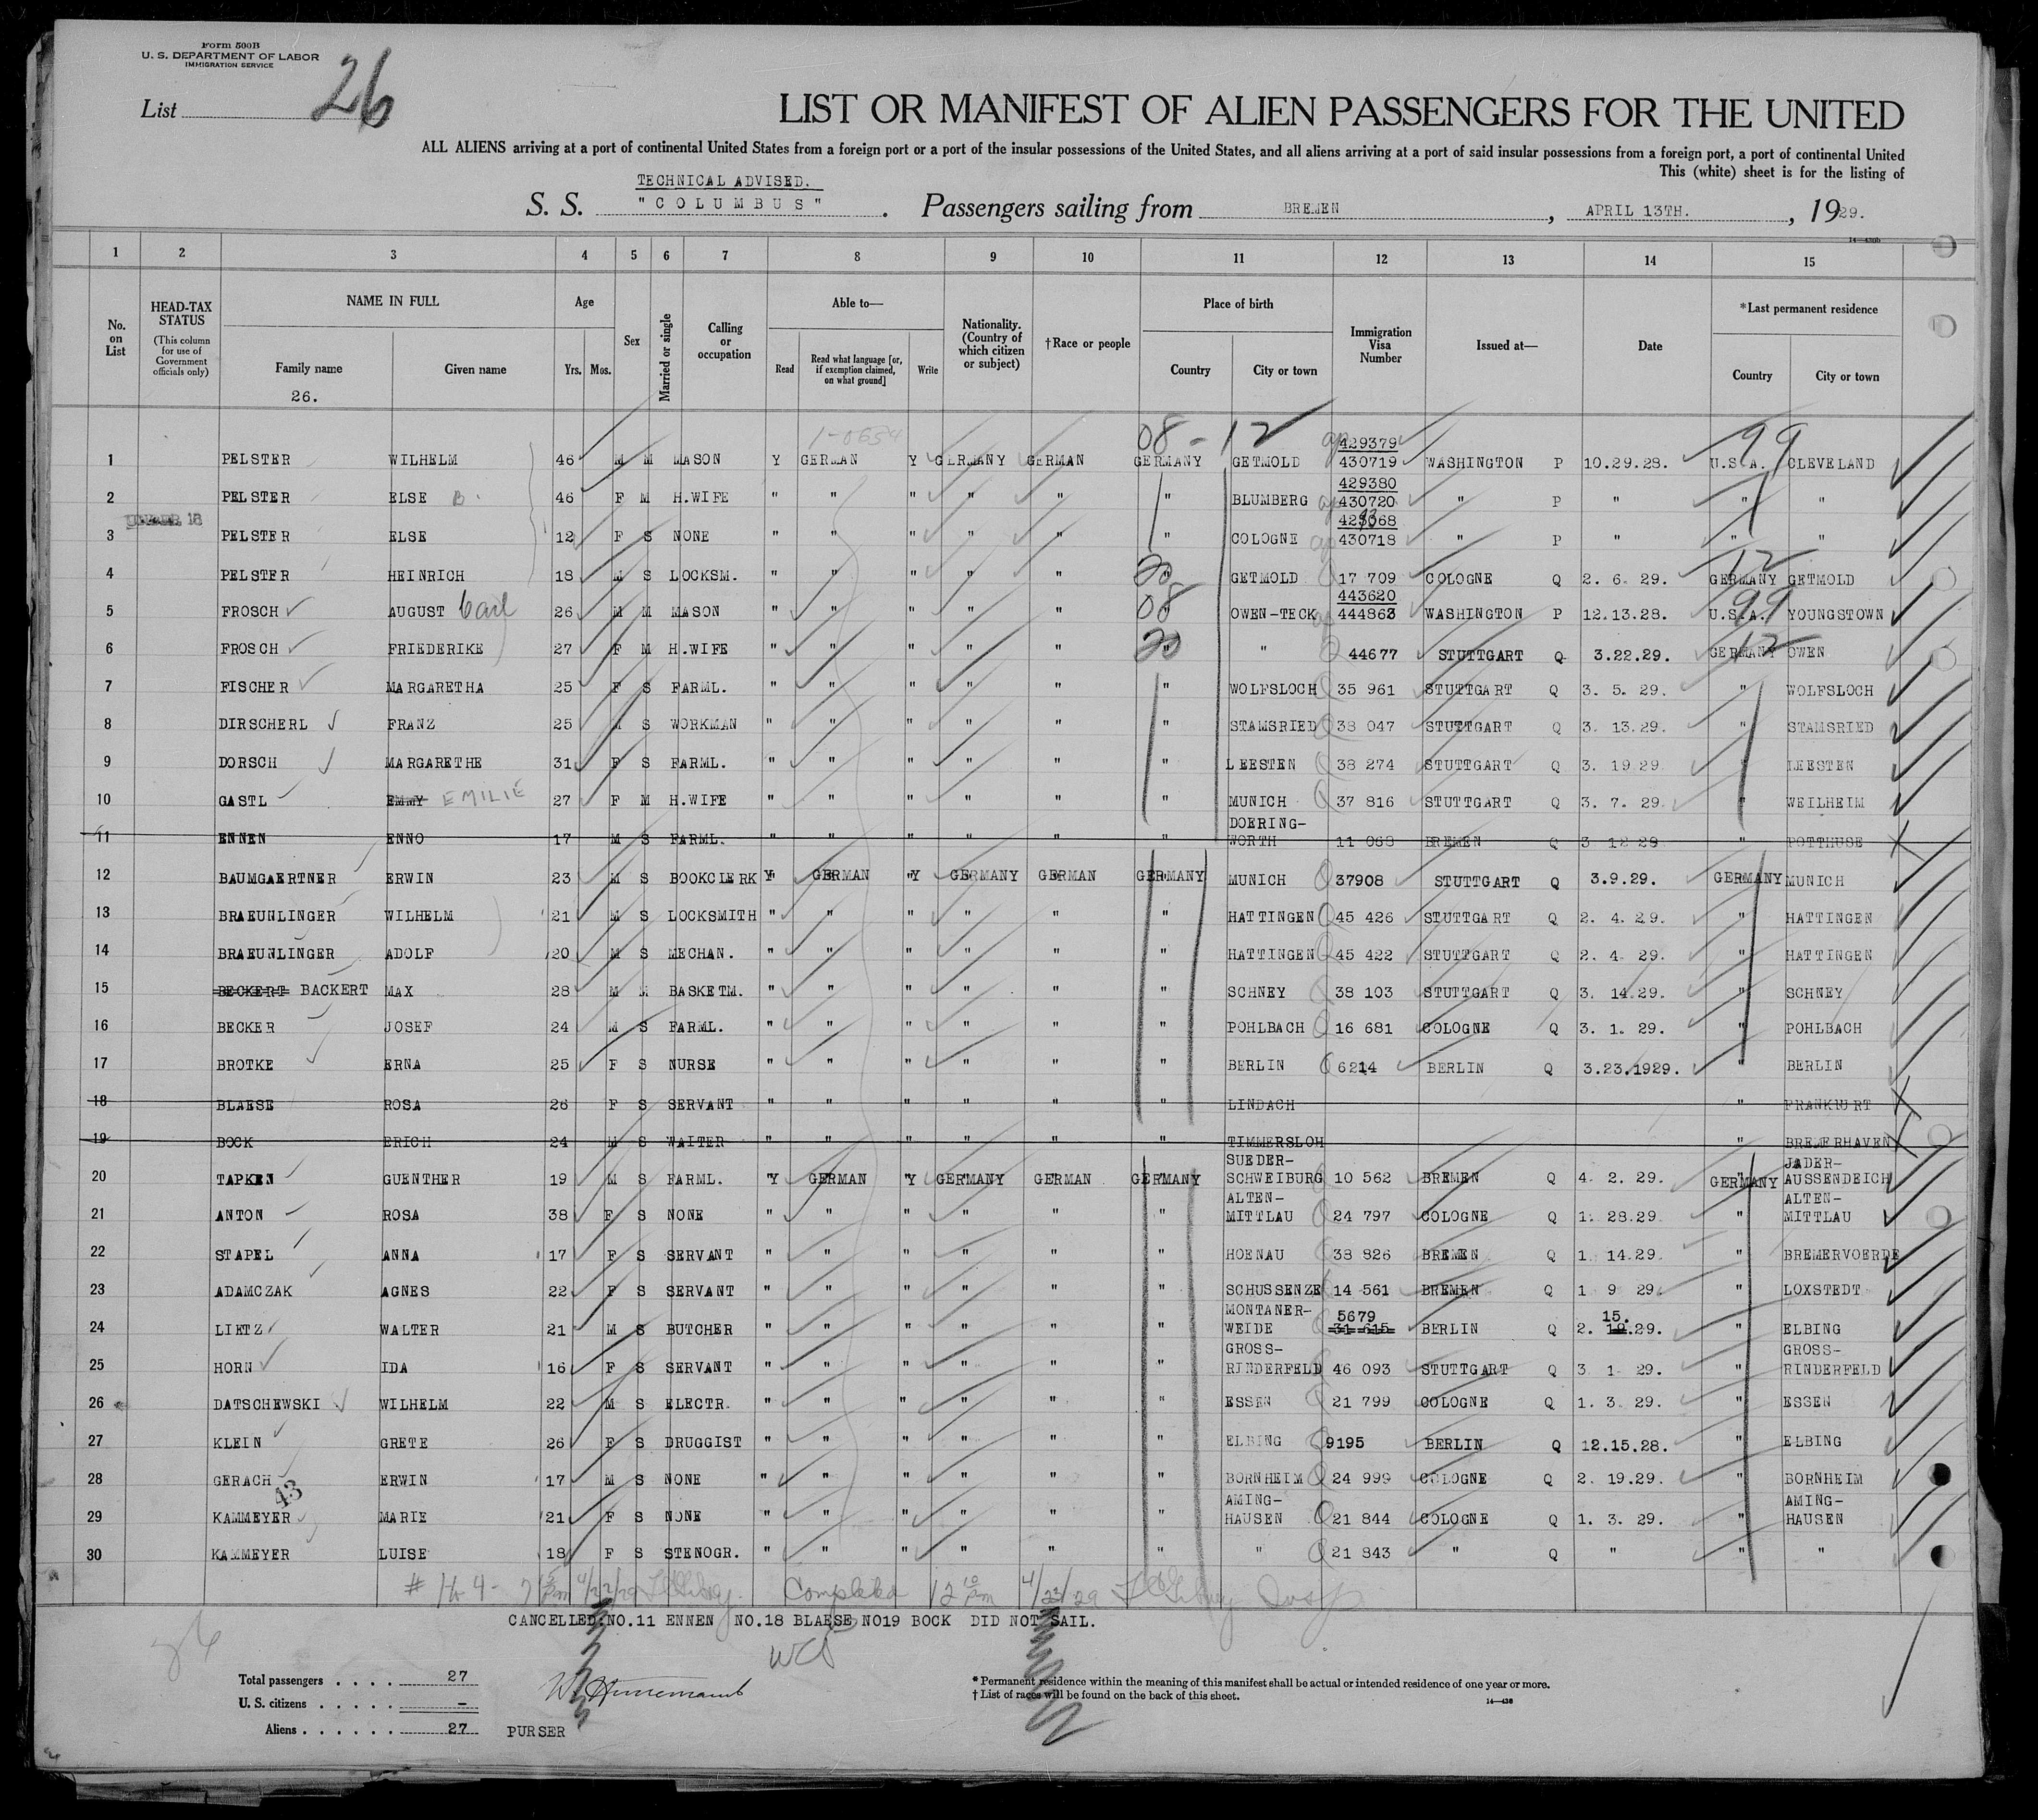 Form 500B
U. S. DEPARTMENT OF LABOR
IMMIGRATION SERVICE
List 26
LIST OR MANIFEST OF ALIEN PASSENGERS FOR THE UNITED
ALL ALIENS arriving at a port of continental United States from a foreign port or a port of the insular possessions of the United States, and all aliens arriving at a port of said insular possessions from a foreign port, a port of continental United
This (white) sheet is for the listing of
TECHNICAL ADVISED.
S. S. "COLUMBUS". Passengers sailing from BREMEN, APRIL 13TH., 1929.
14—430b
1 2 3 4 5 6 7 8 9 10 11 12 13 14 15
No. on List HEAD-TAX STATUS (This column for use of Government officials only) NAME IN FULL Family name Given name Age Yrs. Mos. Sex Married or single Calling or occupation Able to— Read Read what language [or, if exemption claimed, on what ground] Write Nationality. (Country of which citizen or subject) †Race or people Place of birth Country City or town Immigration Visa Number Issued at— Date *Last permanent residence Country City or town
26.
1-0654 08-12 429379 99
1 PELSTER WILHELM 46 M M MASON Y GERMAN Y GERMANY GERMAN GERMANY GETMOLD 430719 WASHINGTON P 10.29.28. U.S.A. CLEVELAND
429380
2 PELSTER ELSE B. 46 F M H.WIFE " " " " " " BLUMBERG 430720 " P " " "
UNDER 18
3 PELSTER ELSE 12 F S NONE " " " " " " COLOGNE 430718 " P " " "
20 12
4 PELSTER HEINRICH 18 M S LOCKSM. " " " " " " GETMOLD 17 709 COLOGNE Q 2. 6. 29. GERMANY GETMOLD
08 443620 99
5 FROSCH AUGUST Carl 26 M M MASON " " " " " OWEN-TECK 444863 WASHINGTON P 12.13.28. U.S.A. YOUNGSTOWN
20 12
6 FROSCH FRIEDERIKE 27 F M H.WIFE " " " " " " " 44677 STUTTGART Q 3.22.29. GERMANY OWEN
7 FISCHER MARGARETHA 25 F S FARML. " " " " " " WOLFSLOCH 35 961 STUTTGART Q 3. 5. 29. " WOLFSLOCH
8 DIRSCHERL FRANZ 25 M S WORKMAN " " " " " " STAMSRIED 38 047 STUTTGART Q 3. 13.29. " STAMSRIED
9 DORSCH MARGARETHE 31 F S FARML. " " " " " " LEESTEN 38 274 STUTTGART Q 3. 19 29. " LEESTEN
10 GASTL EMMY EMILIE 27 F M H.WIFE " " " " " " MUNICH 37 816 STUTTGART Q 3. 7. 29. " WEILHEIM
11 ENNEN ENNO 17 M S FARML. " " " " " " DOERING-WORTH 11 068 BREMEN Q 3 12 29 " POTTHUSE
12 BAUMGAERTNER ERWIN 23 M S BOOKCLERK Y GERMAN Y GERMANY GERMAN GERMANY MUNICH 37908 STUTTGART Q 3.9.29. GERMANY MUNICH
13 BRAEUNLINGER WILHELM 21 M S LOCKSMITH " " " " " " HATTINGEN 45 426 STUTTGART Q 2. 4. 29. " HATTINGEN
14 BRAEUNLINGER ADOLF 20 M S MECHAN. " " " " " " HATTINGEN 45 422 STUTTGART Q 2. 4. 29. " HATTINGEN
15 BECKERT BACKERT MAX 28 M M BASKETM. " " " " " " SCHNEY 38 103 STUTTGART Q 3. 14.29. " SCHNEY
16 BECKER JOSEF 24 M S FARML. " " " " " " POHLBACH 16 681 COLOGNE Q 3. 1. 29. " POHLBACH
17 BROTKE ERNA 25 F S NURSE " " " " " " BERLIN 6214 BERLIN Q 3.23.1929. " BERLIN
18 BLAESE ROSA 26 F S SERVANT " " " " " " LINDACH " FRANKFURT
19 BOCK ERICH 24 M S WAITER " " " " " " TIMMERSLOH " BREMERHAVEN
20 TAPKEN GUENTHER 19 M S FARML. Y GERMAN Y GERMANY GERMAN GERMANY SUEDER-SCHWEIBURG 10 562 BREMEN Q 4. 2. 29. GERMANY JADER-AUSSENDEICH
21 ANTON ROSA 38 F S NONE " " " " " " ALTEN-MITTLAU 24 797 COLOGNE Q 1. 28.29. " ALTEN-MITTLAU
22 STAPEL ANNA 17 F S SERVANT " " " " " " HOENAU 38 826 BREMEN Q 1. 14.29. " BREMERVOERDE
23 ADAMCZAK AGNES 22 F S SERVANT " " " " " " SCHUSSENZE 14 561 BREMEN Q 1 9 29. " LOXSTEDT
24 LIETZ WALTER 21 M S BUTCHER " " " " " " MONTANER-WEIDE 5679 31 615 BERLIN Q 2. 15. 19.29. " ELBING
25 HORN IDA 16 F S SERVANT " " " " " " GROSS-RINDERFELD 46 093 STUTTGART Q 3 1 29. " GROSS-RINDERFELD
26 DATSCHEWSKI WILHELM 22 M S ELECTR. " " " " " " ESSEN 21 799 COLOGNE Q 1. 3. 29. " ESSEN
27 KLEIN GRETE 26 F S DRUGGIST " " " " " " ELBING 9195 BERLIN Q 12.15.28. " ELBING
28 GERACH ERWIN 17 M S NONE " " " " " " BORNHEIM 24 999 COLOGNE Q 2. 19.29. " BORNHEIM
43
29 KAMMEYER MARIE 21 F S NONE " " " " " " AMING-HAUSEN 21 844 COLOGNE Q 1. 3. 29. " AMING-HAUSEN
30 KAMMEYER LUISE 18 F S STENOGR. " " " " " " " 21 843 " Q " " "
Completed 12 10 pm 4/23/29
CANCELLED:NO.11 ENNEN NO.18 BLAESE NO19 BOCK DID NOT SAIL.
26
Total passengers . . . . 27
U. S. citizens . . . . . –
Aliens . . . . . . 27
PURSER
* Permanent residence within the meaning of this manifest shall be actual or intended residence of one year or more.
† List of races will be found on the back of this sheet.
14—430